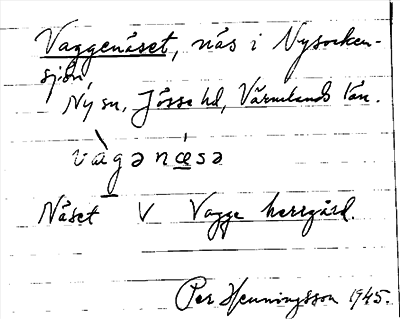 Vaggenäset, näs i Nysocken-
sjön,
Ny sn, Jösse hd, Värmlands län.
vàgənǽsə
Näset V Vagge herrgård.
Per Henningsson 1945.